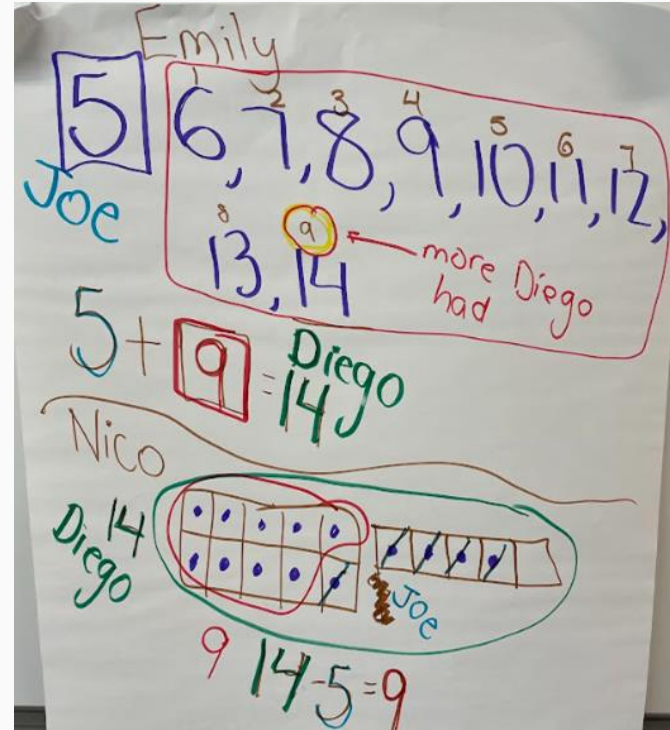 Emily
1 2 3 4 5 6 7
5 6, 7, 8, 9, 10, 11, 12,
Joe
8 9
13, 14
more Diego
had
5 + 9 = 14
Diego
Nico
14
Diego
Joe
9 14-5=9